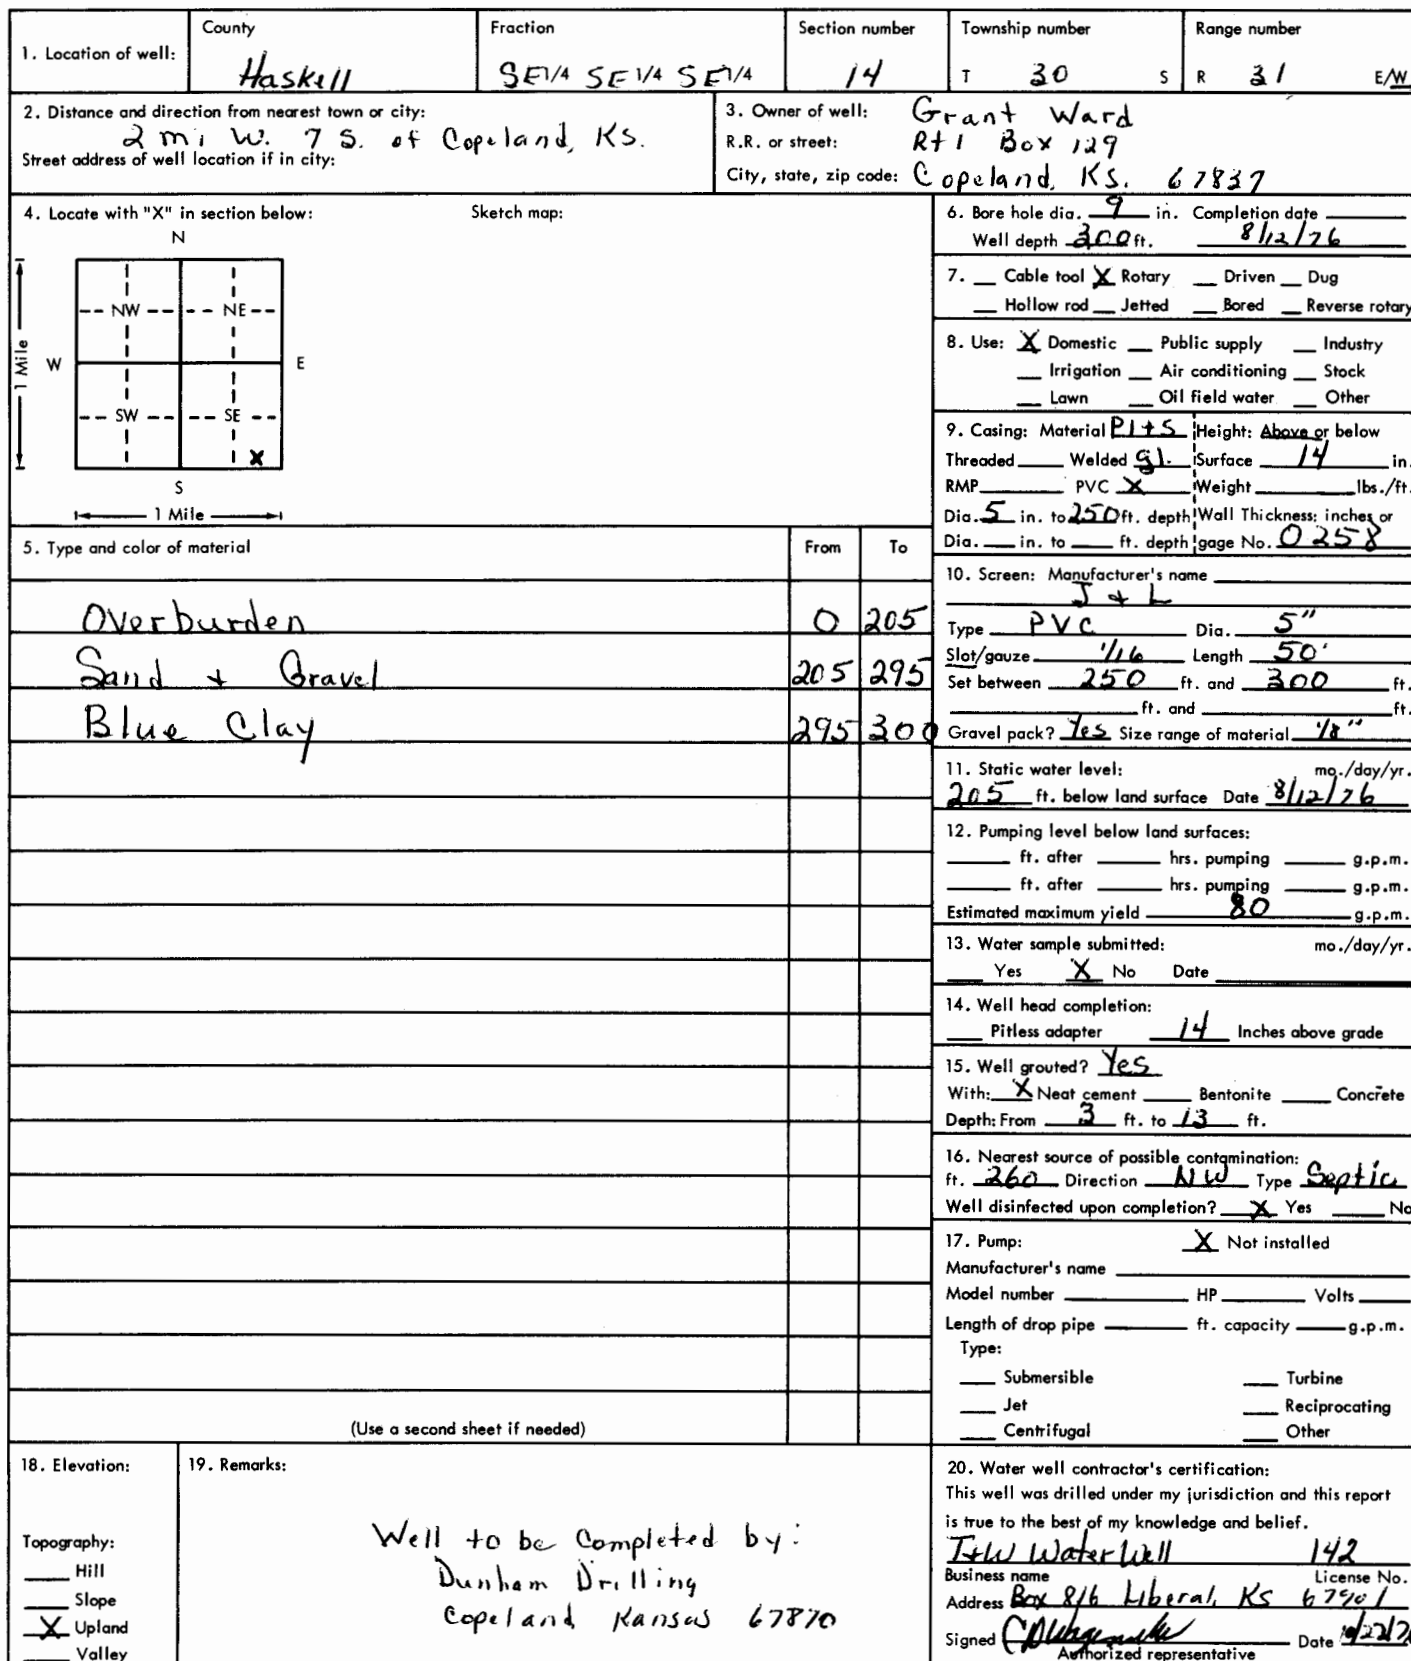 1. Location of well:
County
Haskell
Fraction
SE1/4 SE1/4 SE1/4
Section number
14
Township number
T 30 S
Range number
R 31 E/W
2. Distance and direction from nearest town or city:
2 mi W. 7 S. of Copeland, KS.
Street address of well location if in city:
3. Owner of well: Grant Ward
R.R. or street: Rt 1 Box 129
City, state, zip code: Copeland, KS. 67837
4. Locate with "X" in section below:
Sketch map:
N
NW NE
W E
1 Mile
SW SE
X
S
1 Mile
5. Type and color of material From To
Overburden 0 205
Sand + Gravel 205 295
Blue Clay 295 300
(Use a second sheet if needed)
6. Bore hole dia. 9 in. Completion date
Well depth 300 ft. 8/12/76
7. Cable tool X Rotary Driven Dug
Hollow rod Jetted Bored Reverse rotary
8. Use: X Domestic Public supply Industry
Irrigation Air conditioning Stock
Lawn Oil field water Other
9. Casing: Material Plts Height: Above or below
Threaded Welded gl. Surface 14 in.
RMP PVC X Weight lbs./ft.
Dia. 5 in. to 250 ft. depth Wall Thickness: inches or
Dia. in. to ft. depth gage No. 0258
10. Screen: Manufacturer's name
J + L
Type PVC Dia. 5"
Slot/gauze 1/16 Length 50'
Set between 250 ft. and 300 ft.
ft. and ft.
Gravel pack? Yes Size range of material 1/8"
11. Static water level: mo./day/yr.
205 ft. below land surface Date 8/12/76
12. Pumping level below land surfaces:
ft. after hrs. pumping g.p.m.
ft. after hrs. pumping g.p.m.
Estimated maximum yield 80 g.p.m.
13. Water sample submitted: mo./day/yr.
Yes X No Date
14. Well head completion:
Pitless adapter 14 Inches above grade
15. Well grouted? Yes
With: X Neat cement Bentonite Concrete
Depth: From 3 ft. to 13 ft.
16. Nearest source of possible contamination:
ft. 260 Direction NW Type Septic
Well disinfected upon completion? X Yes No
17. Pump: X Not installed
Manufacturer's name
Model number HP Volts
Length of drop pipe ft. capacity g.p.m.
Type:
Submersible Turbine
Jet Reciprocating
Centrifugal Other
18. Elevation:
Topography:
Hill
Slope
X Upland
Valley
19. Remarks:
Well to be Completed by:
Dunham Drilling
Copeland Kansas 67870
20. Water well contractor's certification:
This well was drilled under my jurisdiction and this report
is true to the best of my knowledge and belief.
T+W Water Well 142
Business name License No.
Address Box 816 Liberal, KS 67901
Signed Date
Authorized representative